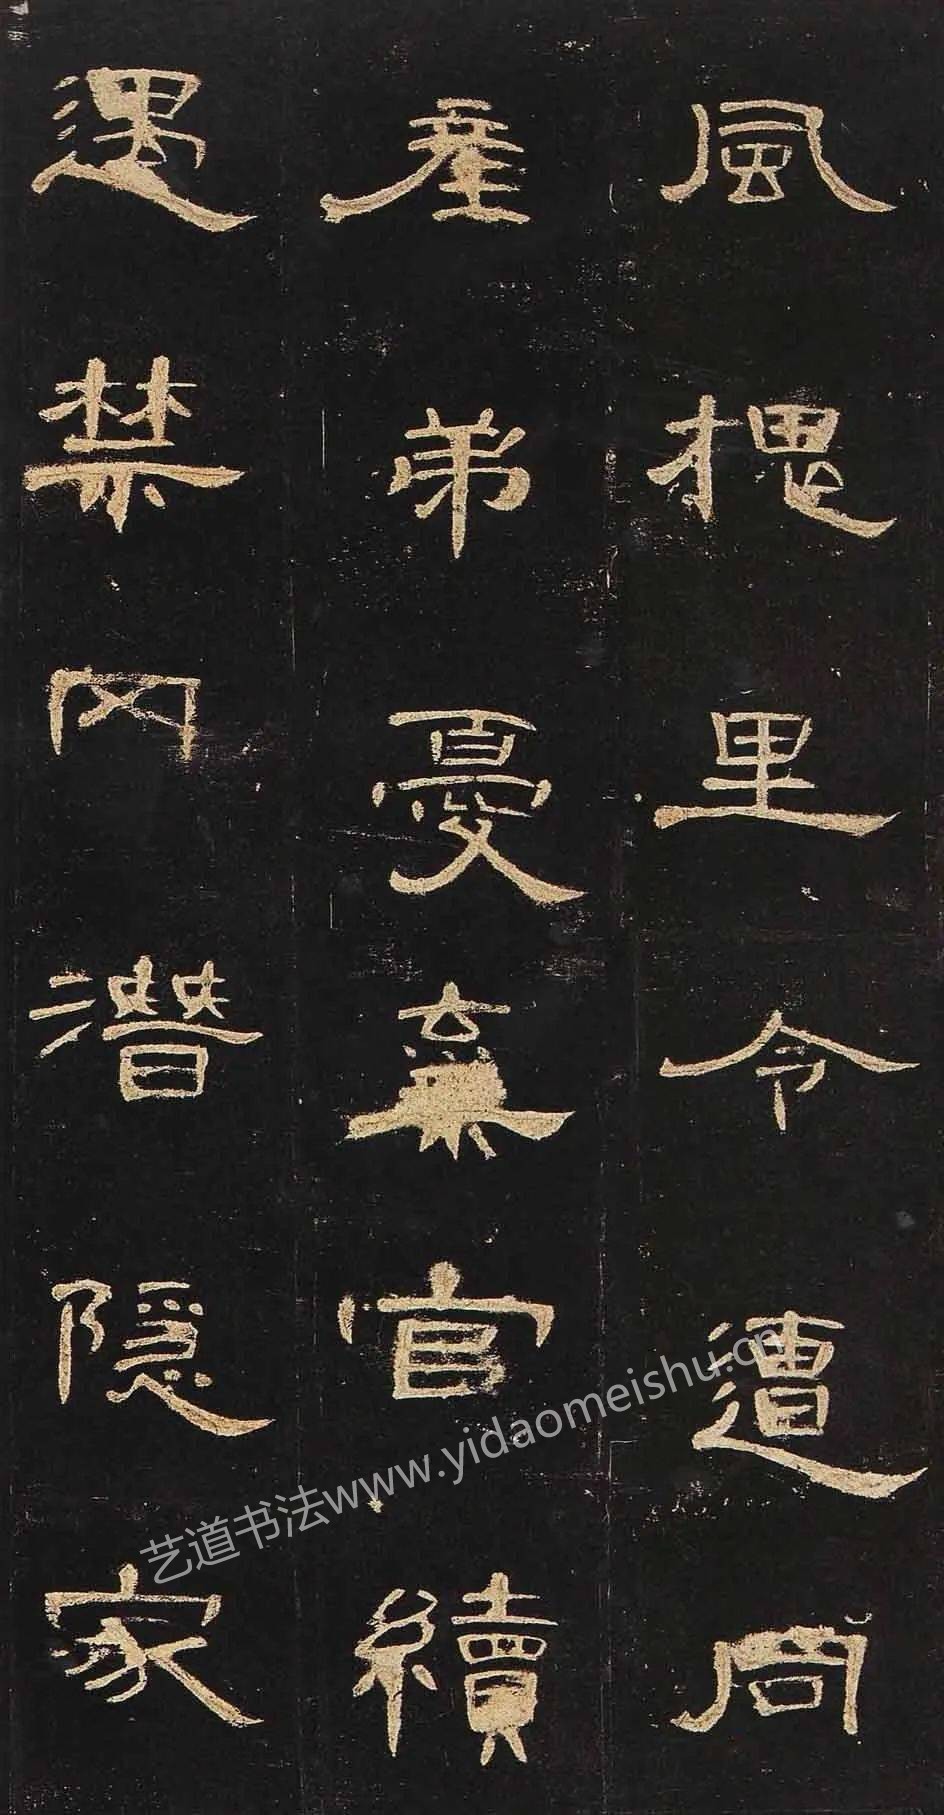 風槐里令遭同
產弟憂棄官續
遇禁网潛隱家
艺道书法www.yidaomeishu.cn